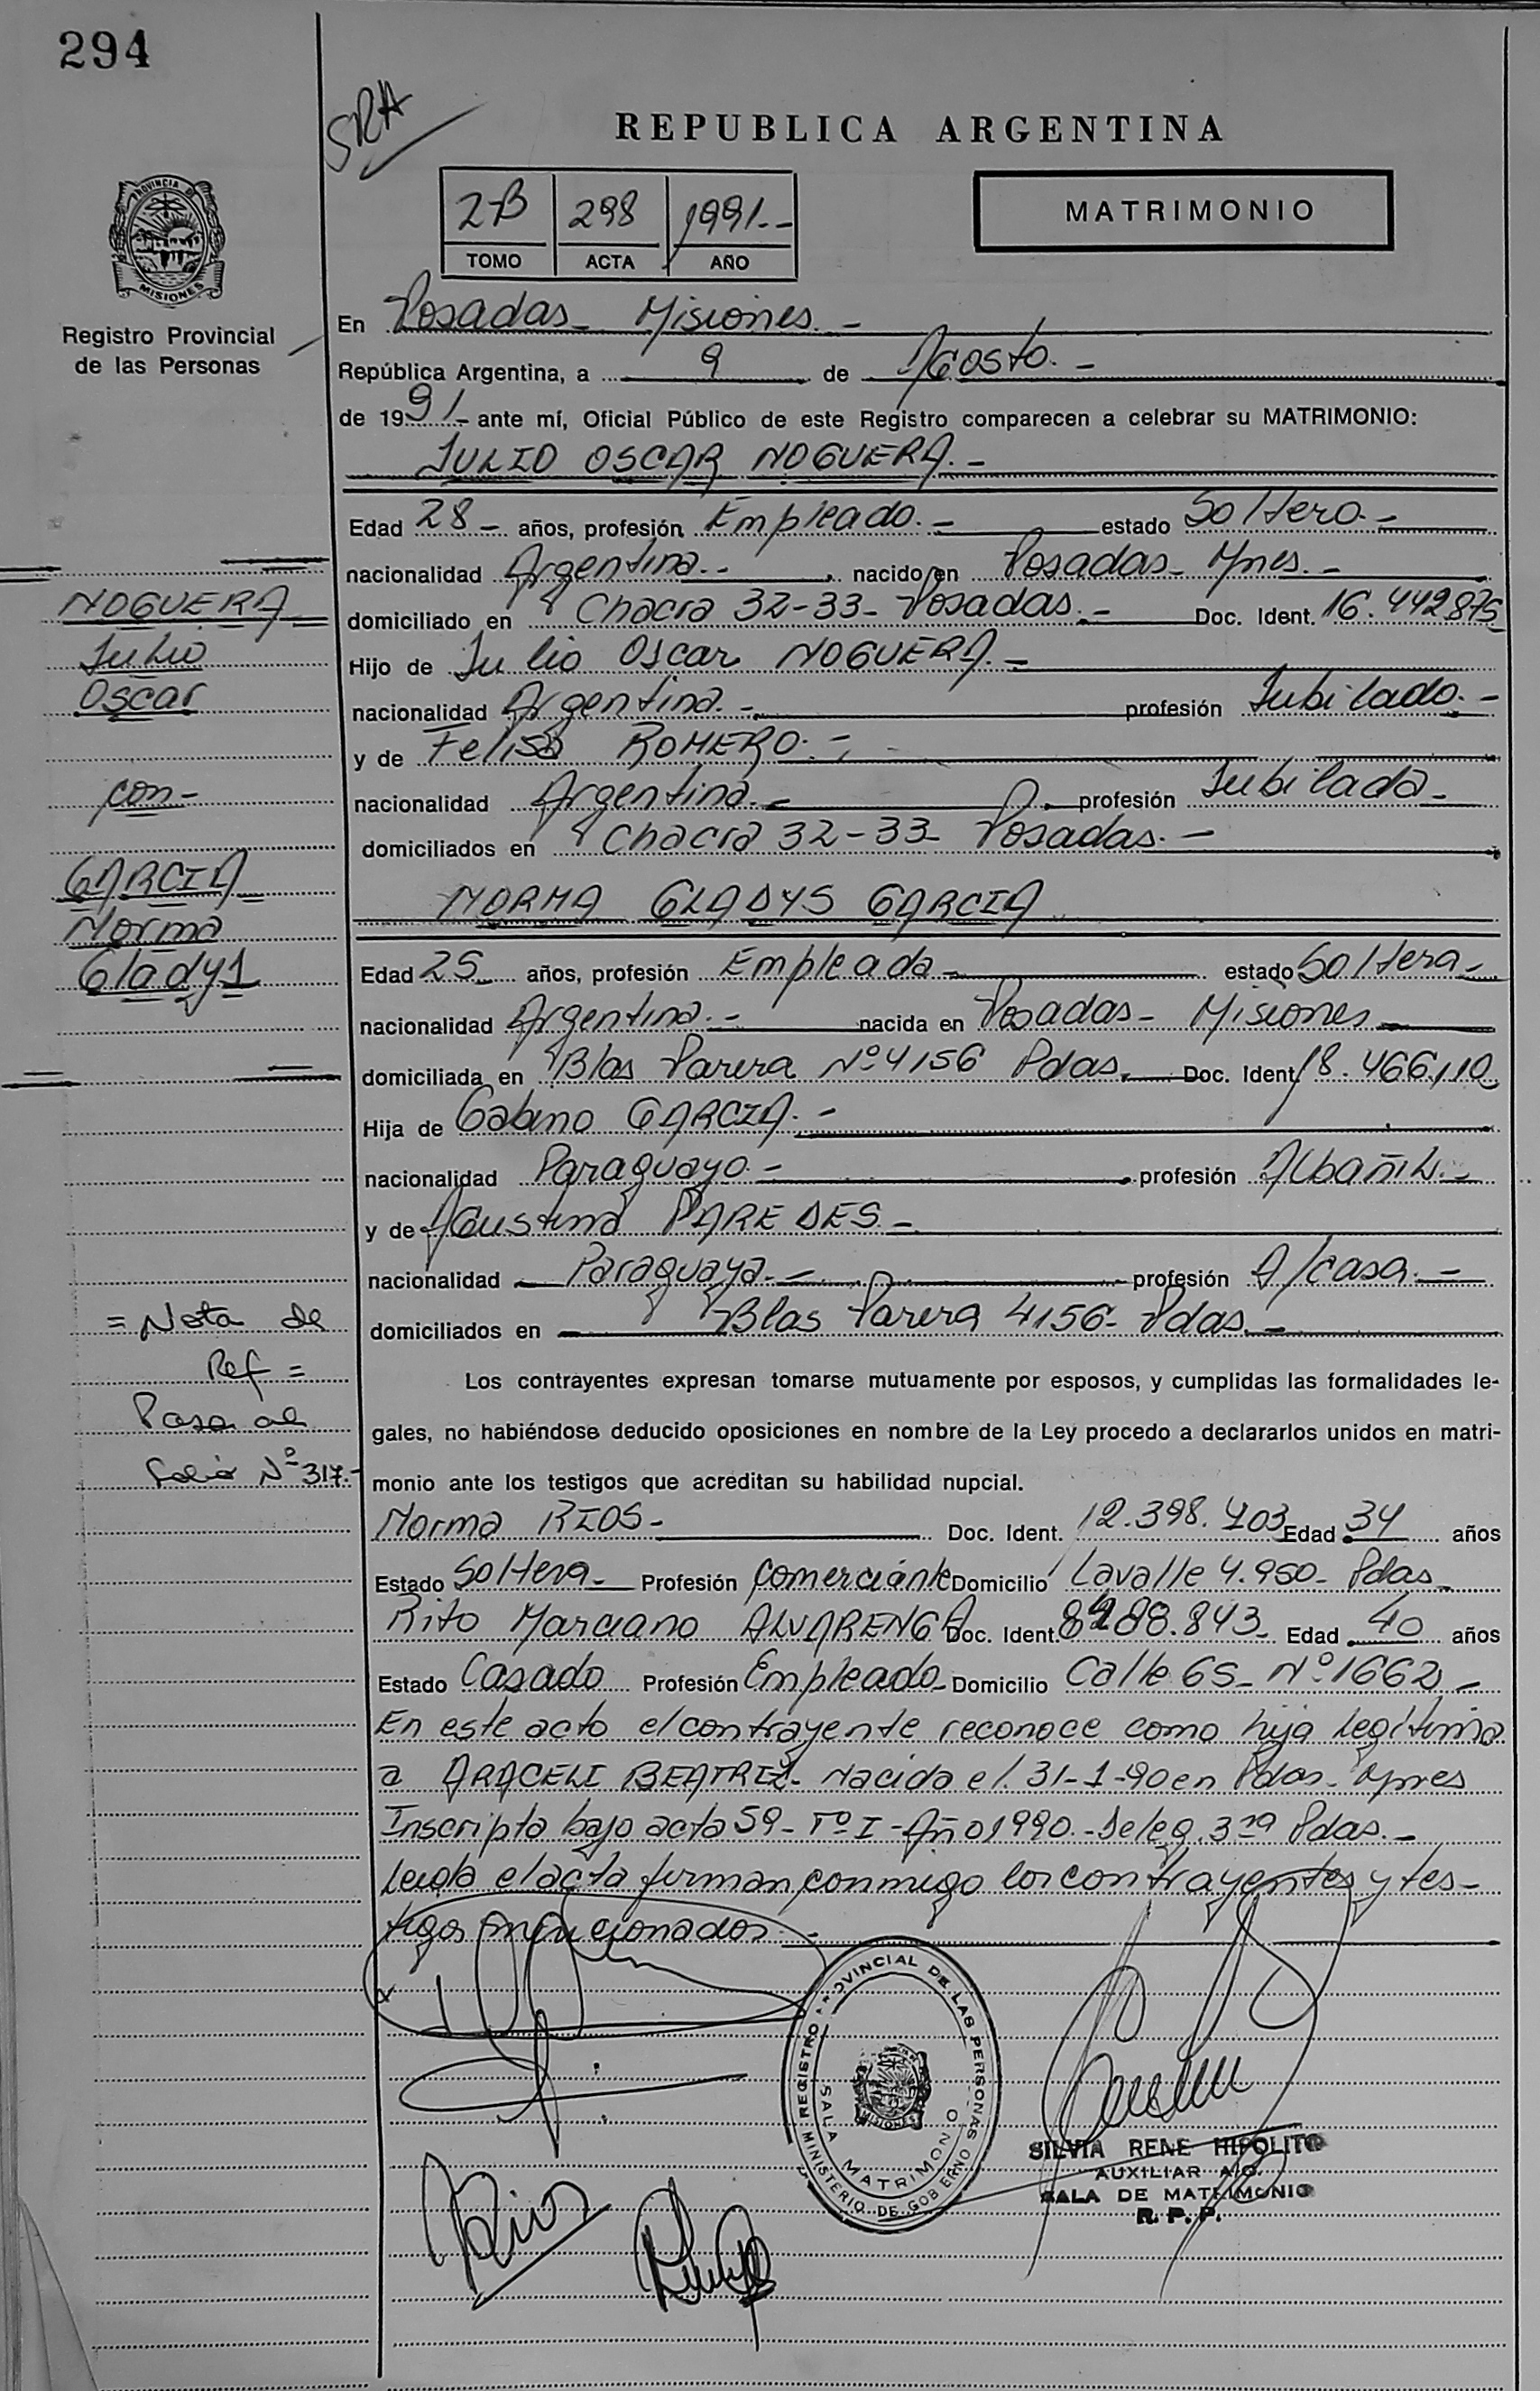 294
SRA
REPUBLICA ARGENTINA
PROVINCIA DE MISIONES
2-B 298 1991.-
TOMO ACTA AÑO
MATRIMONIO
Registro Provincial
de las Personas
En Posadas - Misiones. -
República Argentina, a 9 de Agosto. -
de 1991 - ante mí, Oficial Público de este Registro comparecen a celebrar su MATRIMONIO:
JULIO OSCAR NOGUERA. -
Edad 28 - años, profesión Empleado. - estado Soltero. -
nacionalidad Argentina. - nacido en Posadas - Mnes. -
domiciliado en Chacra 32-33 - Posadas. - Doc. Ident. 16.442875
Hijo de Julio Oscar NOGUERA. -
nacionalidad Argentina. - profesión Jubilado. -
y de Felisa ROMERO. -
nacionalidad Argentina. - profesión Jubilada -
domiciliados en Chacra 32-33 - Posadas. -
NORMA GLADYS GARCIA
Edad 25 años, profesión Empleada - estado Soltera -
nacionalidad Argentina. - nacida en Posadas - Misiones
domiciliada en Blas Parera Nº 4156 Pdas. Doc. Ident. 18.466.110
Hija de Gabino GARCIA. -
nacionalidad Paraguayo. - profesión Albañil. -
y de Agustina PAREDES -
nacionalidad Paraguaya. - profesión A/casa. -
domiciliados en Blas Parera 4156 - Pdas. -
NOGUERA
Julio
Oscar
con -
GARCIA
Norma
Gladys
= Nota de
Ref =
Pasa al
folio Nº 317. -
Los contrayentes expresan tomarse mutuamente por esposos, y cumplidas las formalidades le-
gales, no habiéndose deducido oposiciones en nombre de la Ley procedo a declararlos unidos en matri-
monio ante los testigos que acreditan su habilidad nupcial.
Norma RIOS - Doc. Ident. 12.398.703 Edad 34 años
Estado Soltera - Profesión Comerciante Domicilio Lavalle 4.950 - Pdas -
Rito Marciano ALVARENGA Doc. Ident. 8.843 - Edad 40 años
Estado Casado Profesión Empleado - Domicilio Calle 65 - Nº 1662 -
En este acto el contrayente reconoce como hija legítima
a ARACELI BEATRIZ - Nacida el 31-1-90 en Pdas - Mnes
Inscripta bajo acta 59 - Tº I - Año 1990. - Deleg. 3ra Pdas. -
Leída el acta firman conmigo los contrayentes y tes-
tigos mencionados. -
REGISTRO PROVINCIAL DE LAS PERSONAS
MINISTERIO DE GOBIERNO
SALA MATRIMONIO
MISIONES
SILVIA RENE HIPOLITO
AUXILIAR
SALA DE MATRIMONIO
R.P.P.
Rios